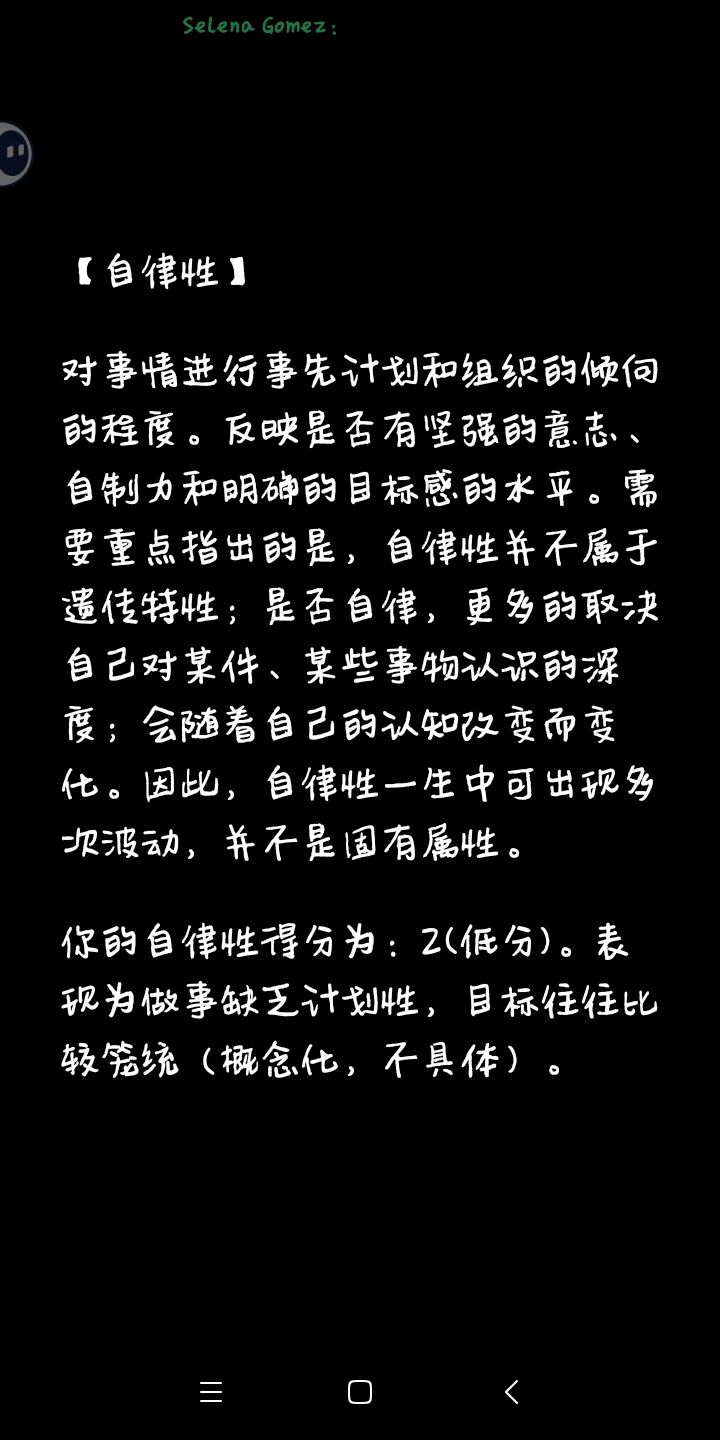 Selena Gomez:
【自律性】
对事情进行事先计划和组织的倾向
的程度。反映是否有坚强的意志、
自制力和明确的目标感的水平。需
要重点指出的是，自律性并不属于
遗传特性；是否自律，更多的取决
自己对某件、某些事物认识的深
度；会随着自己的认知改变而变
化。因此，自律性一生中可出现多
次波动，并不是固有属性。
你的自律性得分为：2(低分)。表
现为做事缺乏计划性，目标往往比
较笼统（概念化，不具体）。